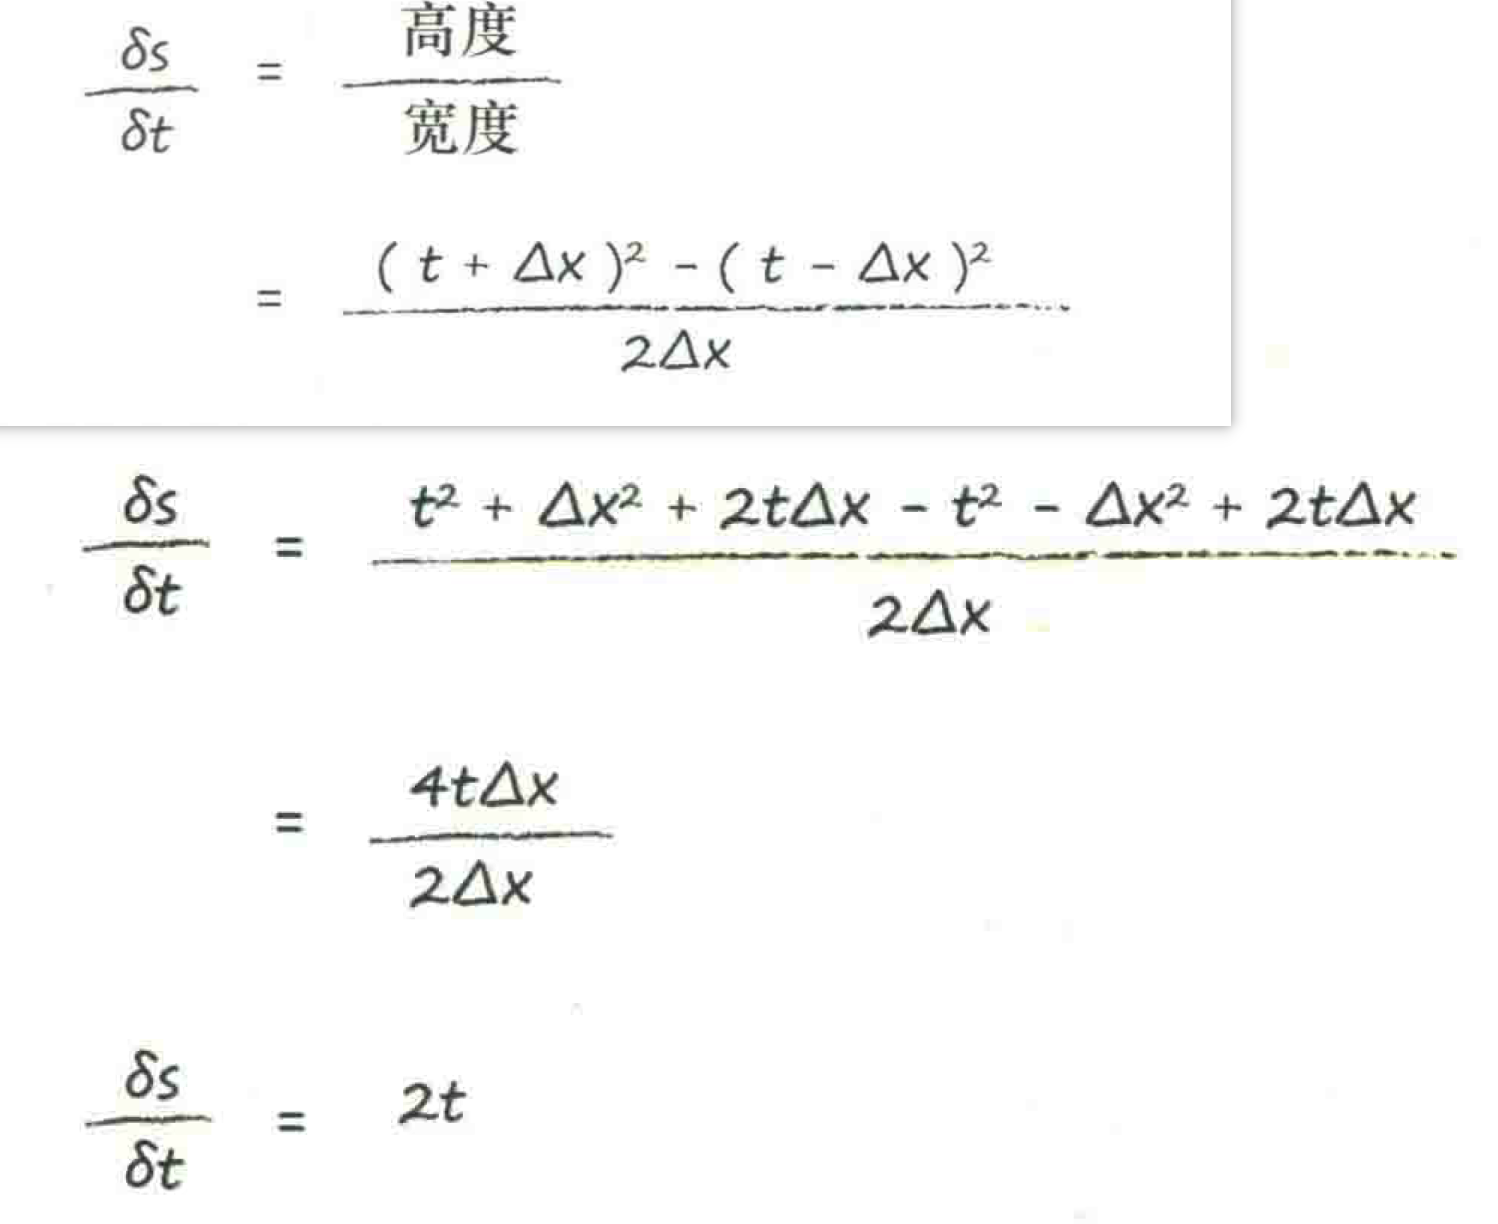 δs/δt = 高度/宽度
= (t + Δx)² - (t - Δx)²/2Δx
δs/δt = t² + Δx² + 2tΔx - t² - Δx² + 2tΔx/2Δx
= 4tΔx/2Δx
δs/δt = 2t